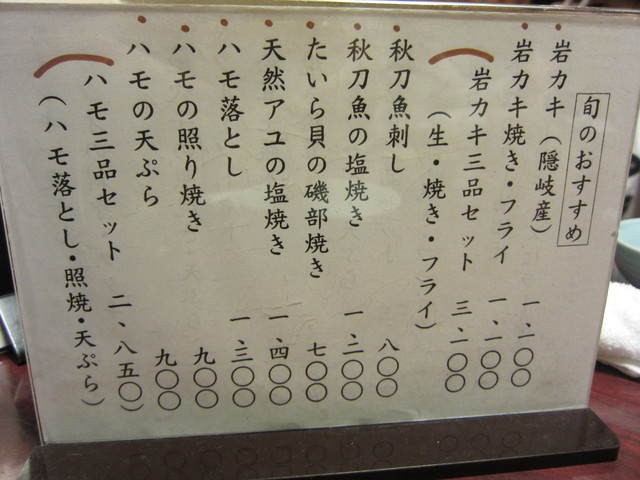 旬のおすすめ
岩カキ(隠岐産) 一、一〇〇
岩カキ焼き・フライ 一、一〇〇
岩カキ三品セット 三、一〇〇
(生・焼き・フライ)
秋刀魚刺し 八〇〇
秋刀魚の塩焼き 一、二〇〇
たいら貝の磯部焼き 七〇〇
天然アユの塩焼き 一、四〇〇
ハモ落とし 一、三〇〇
ハモの照り焼き 九〇〇
ハモの天ぷら 九〇〇
ハモ三品セット 二、八五〇
(ハモ落とし・照焼・天ぷら)